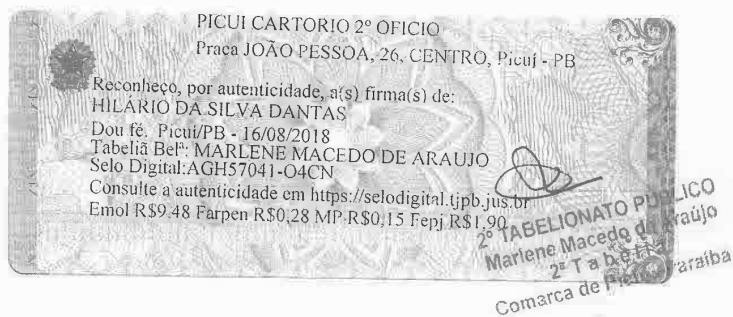 PICUI CARTORIO 2º OFICIO
Praca JOÃO PESSOA, 26, CENTRO, Picuí - PB
Reconheço, por autenticidade, a(s) firma(s) de:
HILÁRIO DA SILVA DANTAS
Dou fé. Picui/PB - 16/08/2018
Tabeliã Belª: MARLENE MACEDO DE ARAUJO
Selo Digital:AGH57041-O4CN
Consulte a autenticidade em https://selodigital.tjpb.jus.br
Emol R$9.48 Farpen R$0,28 MP-R$0,15 Fepj R$1,90
2º TABELIONATO PÚBLICO
Marlene Macedo de Araújo
2ª
Comarca de